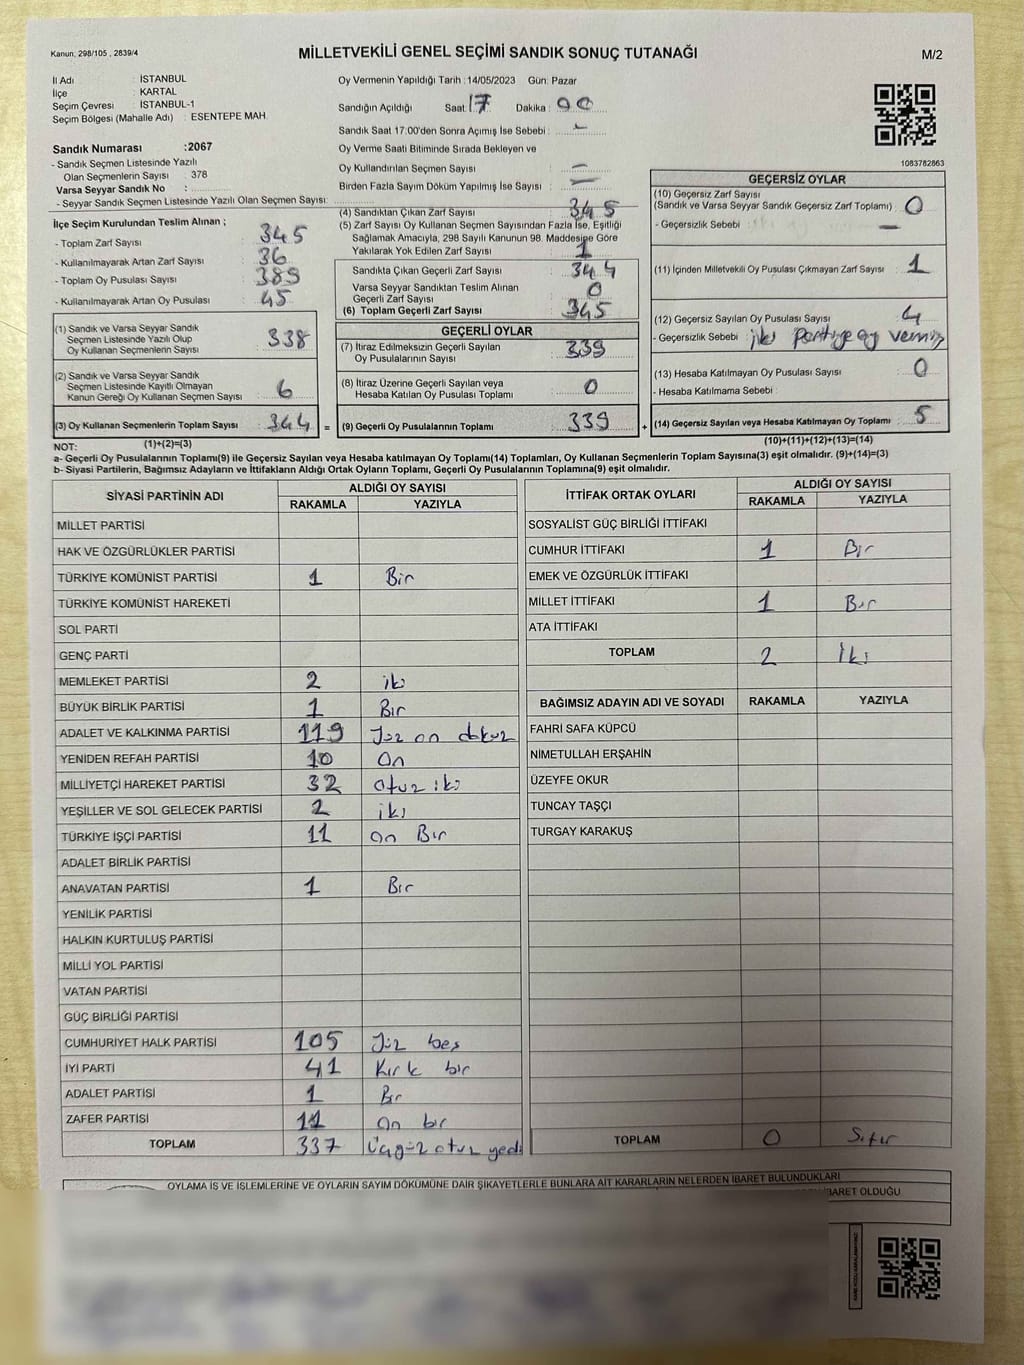 Kanun: 298/105 , 2839/4
MİLLETVEKİLİ GENEL SEÇİMİ SANDIK SONUÇ TUTANAĞI
M/2
İl Adı : İSTANBUL
İlçe : KARTAL
Seçim Çevresi : İSTANBUL-1
Seçim Bölgesi (Mahalle Adı) : ESENTEPE MAH
Sandık Numarası :2067
- Sandık Seçmen Listesinde Yazılı
Olan Seçmenlerin Sayısı : 378
Varsa Seyyar Sandık No :
- Seyyar Sandık Seçmen Listesinde Yazılı Olan Seçmen Sayısı:
Oy Vermenin Yapıldığı Tarih : 14/05/2023 Gün: Pazar
Sandığın Açıldığı Saat: 17 Dakika : 00
Sandık Saat 17:00'den Sonra Açımış İse Sebebi : -
Oy Verme Saati Bitiminde Sırada Bekleyen ve
Oy Kullandırılan Seçmen Sayısı : -
Birden Fazla Sayım Döküm Yapılmış İse Sayısı : -
1083782863
İlçe Seçim Kurulundan Teslim Alınan ;
- Toplam Zarf Sayısı : 345
- Kullanılmayarak Artan Zarf Sayısı : 36
- Toplam Oy Pusulası Sayısı : 389
- Kullanılmayarak Artan Oy Pusulası : 45
(1) Sandık ve Varsa Seyyar Sandık
Seçmen Listesinde Yazılı Olup
Oy Kullanan Seçmenlerin Sayısı : 338
(2) Sandık ve Varsa Seyyar Sandık
Seçmen Listesinde Kayıtlı Olmayan
Kanun Gereği Oy Kullanan Seçmen Sayısı : 6
(3) Oy Kullanan Seçmenlerin Toplam Sayısı : 344 =
(4) Sandıktan Çıkan Zarf Sayısı : 345
(5) Zarf Sayısı Oy Kullanan Seçmen Sayısından Fazla İse, Eşitliği
Sağlamak Amacıyla, 298 Sayılı Kanunun 98. Maddesine Göre
Yakılarak Yok Edilen Zarf Sayısı : 1
Sandıkta Çıkan Geçerli Zarf Sayısı : 344
Varsa Seyyar Sandıktan Teslim Alınan
Geçerli Zarf Sayısı : 0
(6) Toplam Geçerli Zarf Sayısı : 345
GEÇERLİ OYLAR
(7) İtiraz Edilmeksizin Geçerli Sayılan
Oy Pusulalarının Sayısı : 339
(8) İtiraz Üzerine Geçerli Sayılan veya
Hesaba Katılan Oy Pusulası Toplamı : 0
(9) Geçerli Oy Pusulalarının Toplamı : 339 +
GEÇERSİZ OYLAR
(10) Geçersiz Zarf Sayısı
(Sandık ve Varsa Seyyar Sandık Geçersiz Zarf Toplamı) : 0
- Geçersizlik Sebebi : -
(11) İçinden Milletvekili Oy Pusulası Çıkmayan Zarf Sayısı : 1
(12) Geçersiz Sayılan Oy Pusulası Sayısı : 4
- Geçersizlik Sebebi : iki partiye oy vermiş
(13) Hesaba Katılmayan Oy Pusulası Sayısı : 0
- Hesaba Katılmama Sebebi :
(14) Geçersiz Sayılan veya Hesaba Katılmayan Oy Toplamı : 5
NOT: (1)+(2)=(3) (10)+(11)+(12)+(13)=(14)
a- Geçerli Oy Pusulaları Toplamı(9) ile Geçersiz Sayılan veya Hesaba katılmayan Oy Toplamı(14) Toplamları, Oy Kullanan Seçmenlerin Toplam Sayısına(3) eşit olmalıdır. (9)+(14)=(3)
b- Siyasi Partilerin, Bağımsız Adayların ve İttifakların Aldığı Ortak Oyların Toplamı, Geçerli Oy Pusulalarının Toplamına(9) eşit olmalıdır.
SİYASİ PARTİNİN ADI ALDIĞI OY SAYISI
RAKAMLA YAZIYLA
MİLLET PARTİSİ
HAK VE ÖZGÜRLÜKLER PARTİSİ
TÜRKİYE KOMÜNİST PARTİSİ 1 Bir
TÜRKİYE KOMÜNİST HAREKETİ
SOL PARTİ
GENÇ PARTİ
MEMLEKET PARTİSİ 2 iki
BÜYÜK BİRLİK PARTİSİ 1 Bir
ADALET VE KALKINMA PARTİSİ 119 Yüz on dokuz
YENİDEN REFAH PARTİSİ 10 On
MİLLİYETÇİ HAREKET PARTİSİ 32 otuz iki
YEŞİLLER VE SOL GELECEK PARTİSİ 2 iki
TÜRKİYE İŞÇİ PARTİSİ 11 on Bir
ADALET BİRLİK PARTİSİ
ANAVATAN PARTİSİ 1 Bir
YENİLİK PARTİSİ
HALKIN KURTULUŞ PARTİSİ
MİLLİ YOL PARTİSİ
VATAN PARTİSİ
GÜÇ BİRLİĞİ PARTİSİ
CUMHURİYET HALK PARTİSİ 105 Yüz beş
İYİ PARTİ 41 Kırk bir
ADALET PARTİSİ 1 Bir
ZAFER PARTİSİ 11 on bir
TOPLAM 337 Üçyüz otuz yedi
İTTİFAK ORTAK OYLARI ALDIĞI OY SAYISI
RAKAMLA YAZIYLA
SOSYALİST GÜÇ BİRLİĞİ İTTİFAKI
CUMHUR İTTİFAKI 1 Bir
EMEK VE ÖZGÜRLÜK İTTİFAKI
MİLLET İTTİFAKI 1 Bir
ATA İTTİFAKI
TOPLAM 2 İki
BAĞIMSIZ ADAYIN ADI VE SOYADI RAKAMLA YAZIYLA
FAHRİ SAFA KÜPCÜ
NİMETULLAH ERŞAHİN
ÜZEYFE OKUR
TUNCAY TAŞÇI
TURGAY KARAKUŞ
TOPLAM 0 Sıfır
OYLAMA İŞ VE İŞLEMLERİNE VE OYLARIN SAYIM DÖKÜMÜNE DAİR ŞİKAYETLERLE BUNLARA AİT KARARLARIN NELERDEN İBARET BULUNDUKLARI
İBARET OLDUĞU